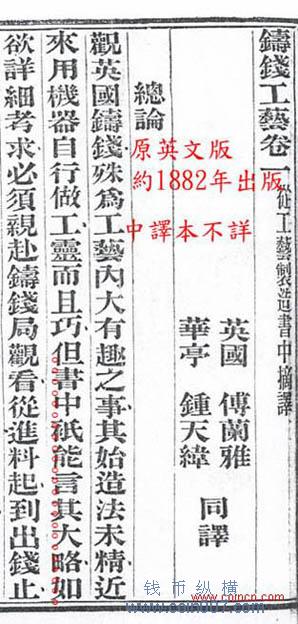 鑄錢工藝卷一從工藝製造書中摘譯
英國 傅蘭雅
華亭 鍾天緯
同譯
總論
觀英國鑄錢殊爲工藝內大有趣之事其始造法未精近
來用機器自行做工靈而且巧但書中祇能言其大略如
欲詳細考求必須親赴鑄錢局觀看從進料起到出錢止
原英文版
約1882年出版
中譯本不詳
钱币纵横
www.coincn.com